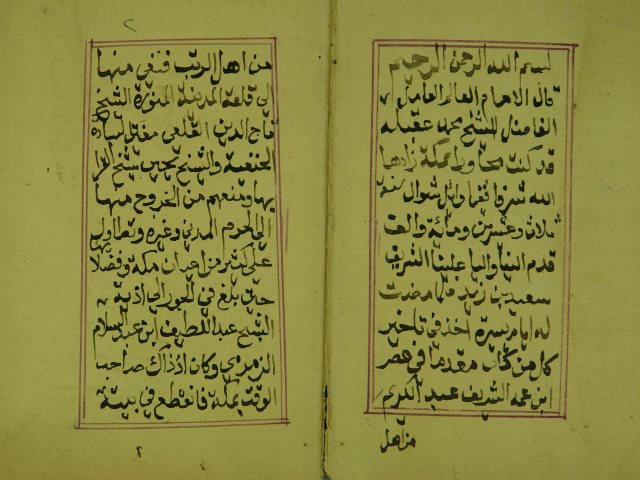 بسم الله الرحمن الرحيم
قال الامام العالم العامل
الفاضل الشيخ محمد عقيله
قد كنت مجاورا بمكة زادها
الله شرفا ففي اوائل شوال سنة
ثلاث وعشرين ومائة والف
قدم الينا واليا علينا الشريف
سعيد بن زيد فلما مضت
له ايام يسيرة اخذ في تاخير
كل من كان مقدما في عصر
ابن عمه الشريف عبد الكريم
من اهل
٢
من اهل الريب فنفى منها
الى قلعة المدينة المنورة الشيخ
تاج الدين القلعي مفتي السادة
الحنفية والشيخ يحيى شيخ القرا
بها ومنعهم من الخروج منها
الى الحرم المدني وغيره وتطاول
على كثير من اعيان مكة وفضلا
حتى بلغ في الجور الى اذية
الشيخ عبد اللطيف ابن عبد السلام
الزمزمي وكان اذ ذاك صاحب
الوقت بمكة فانقطع في بيته
٢